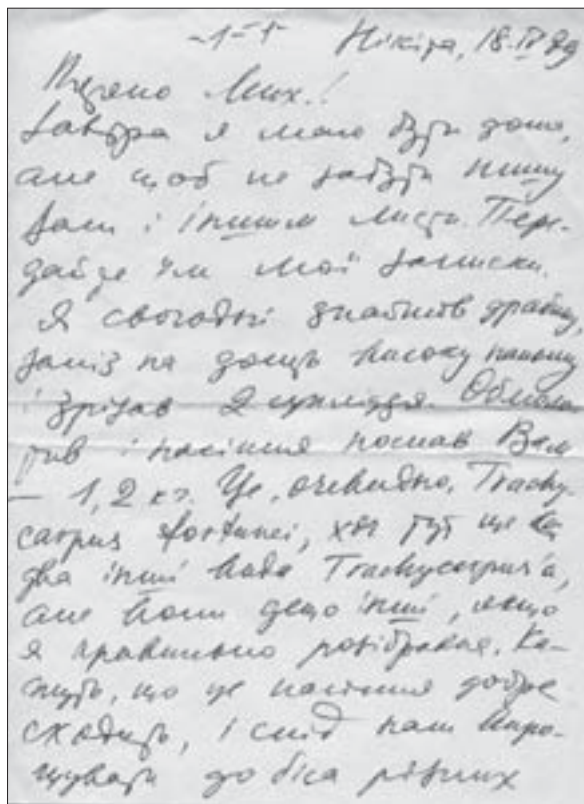 -1-
Нікіта, 18.IV 89
Мих.!
Завтра я маю бути дома,
але щоб не забути пишу
Вам і іншим листи. Пере-
дайте їм мої записки.
Я сьогодні знайшов драбину,
заліз на досить високу пальму
і зрізав 2 суцвіття. Обмоло-
тив і насіння послав Вам
– 1,2 кг. Це, очевидно, Trachy-
carpus fortunei, хоч тут ще є
два інші види Trachycarpus'а,
але вони дещо інші, якщо
я правильно розібрався. Ка-
жуть, що це насіння добре
сходить, і слід нам виро-
щувати до біса різних